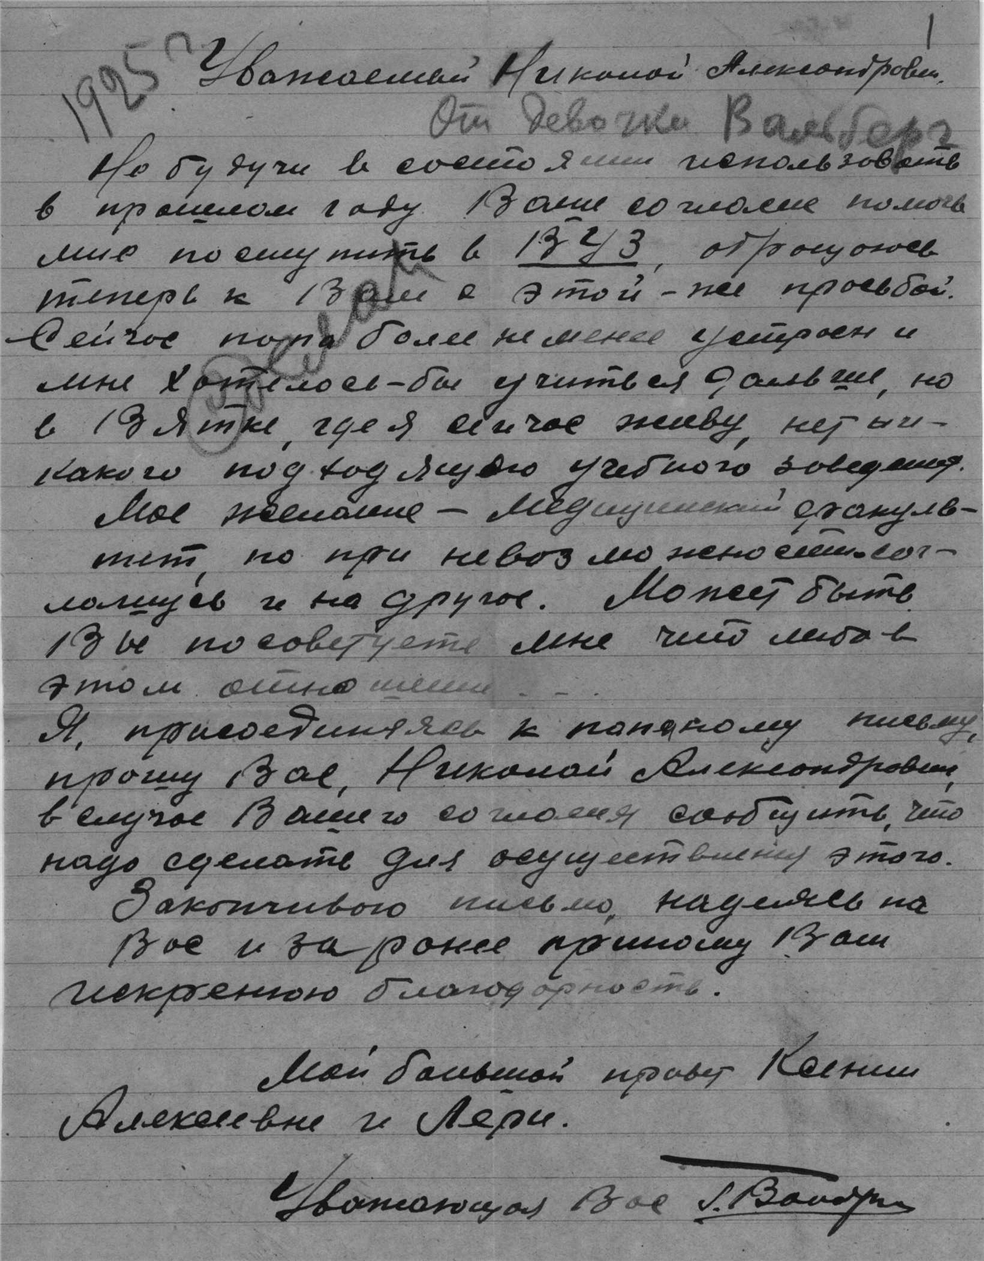 1
1925 г
Уважаемый Николай Александрович.
От девочки Вальберг
Не будучи в состоянии использовать
в прошлом году Ваше согласие помочь
мне поступить в ВУЗ, обращаюсь
теперь к Вам с этой-же просьбой.
Сейчас папа более не менее устроен и
мне хотелось-бы учиться дальше, но
в Вятке, где я сейчас живу, нет ни-
какого подходящего учебного заведения.
Мое желание – медицинский факуль-
тет, но при невозможности сог-
лашусь и на другое. Может быть
Вы посоветуете мне что либо в
этом отношении...
Я, присоединяясь к папиному письму,
прошу Вас, Николай Александрович,
в случае Вашего согласия сообщить, что
надо сделать для осуществления этого.
Заканчиваю письмо, надеясь на
Вас и заранее приношу Вам
искренюю благодарность.
Мой большой привет Ксении
Алексеевне и Лёри.
Уважающая Вас